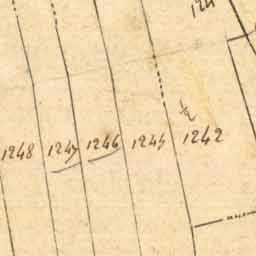 124
½
1248 1247 1246 1245 1242